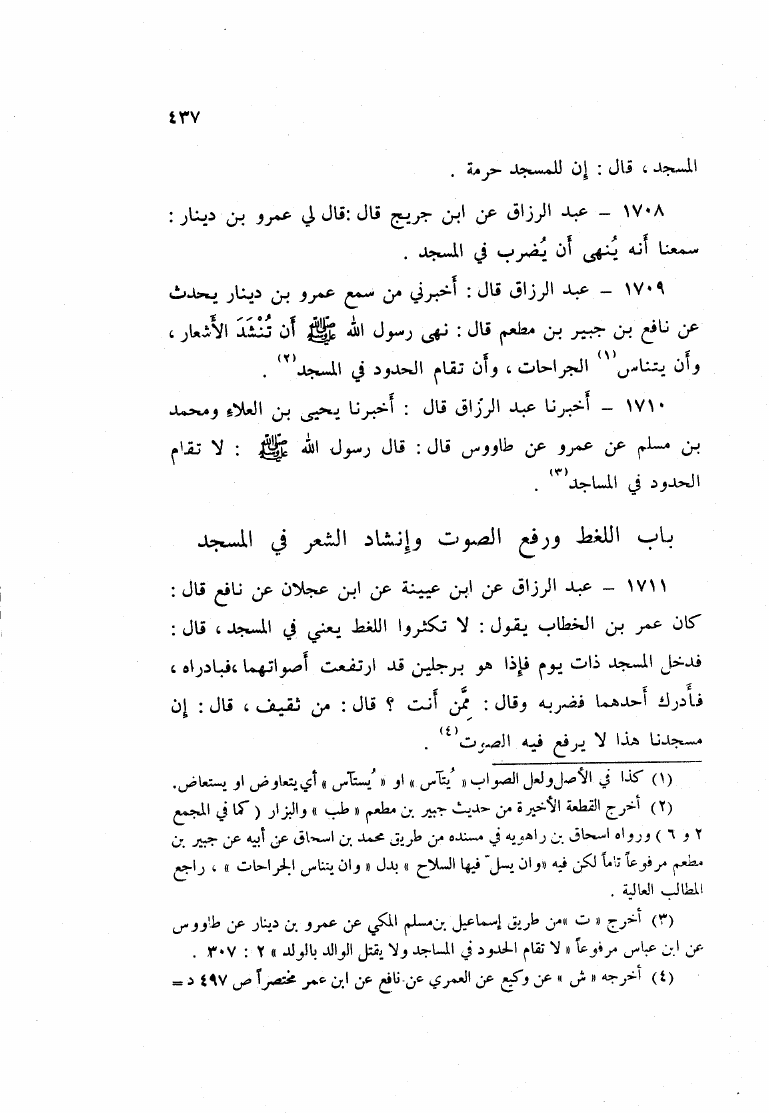 ٤٣٧
المسجد ، قال : إن للمسجد حرمة .
١٧٠٨ – عبد الرزاق عن ابن جريج قال :قال لي عمرو بن دينار :
سمعنا أنه يُنهى أن يُضرب في المسجد .
١٧٠٩ – عبد الرزاق قال : أخبرني من سمع عمرو بن دينار يحدث
عن نافع بن جبير بن مطعم قال : نهى رسول الله ﷺ أن تُنْشَدَ الأشعار ،
وأن يتناس(١) الجراحات ، وأن تقام الحدود في المسجد(٢) .
١٧١٠ – أخبرنا عبد الرزاق قال : أخبرنا يحيى بن العلاء ومحمد
بن مسلم عن عمرو عن طاووس قال : قال رسول الله ﷺ : لا تقام
الحدود في المساجد(٣) .
باب اللغط ورفع الصوت وإنشاد الشعر في المسجد
١٧١١ – عبد الرزاق عن ابن عيينة عن ابن عجلان عن نافع قال :
كان عمر بن الخطاب يقول : لا تكثروا اللغط يعني في المسجد ، قال :
فدخل المسجد ذات يوم فإذا هو برجلين قد ارتفعت أصواتهما ،فبادراه ،
فأدرك أحدهما فضربه وقال : مِمَّن أنت ؟ قال : من ثقيف ، قال : إن
مسجدنا هذا لا يرفع فيه الصوت(٤) .
(١) كذا في الأصل ولعل الصواب « يُتآس » او « يُستآس » أي يتعاوض او يستعاض.
(٢) أخرج القطعة الأخيرة من حديث جبير بن مطعم « طب » والبزار ( كما في المجمع
٢ و ٦ ) ورواه اسحاق بن راهويه في مسنده من طريق محمد بن اسحاق عن أبيه عن جبير بن
مطعم مرفوعاً تاماً لكن فيه «وان يسلّ فيها السلاح » بدل « وان يتناس الجراحات » ، راجع
المطالب العالية .
(٣) أخرج « ت »من طريق إسماعيل بن مسلم المكي عن عمرو بن دينار عن طاووس
عن ابن عباس مرفوعاً « لا تقام الحدود في المساجد ولا يقتل الوالد بالولد » ٢ : ٣٠٧ .
(٤) أخرجه « ش » عن وكيع عن العمري عن نافع عن ابن عمر مختصراً ص ٤٩٧ د =